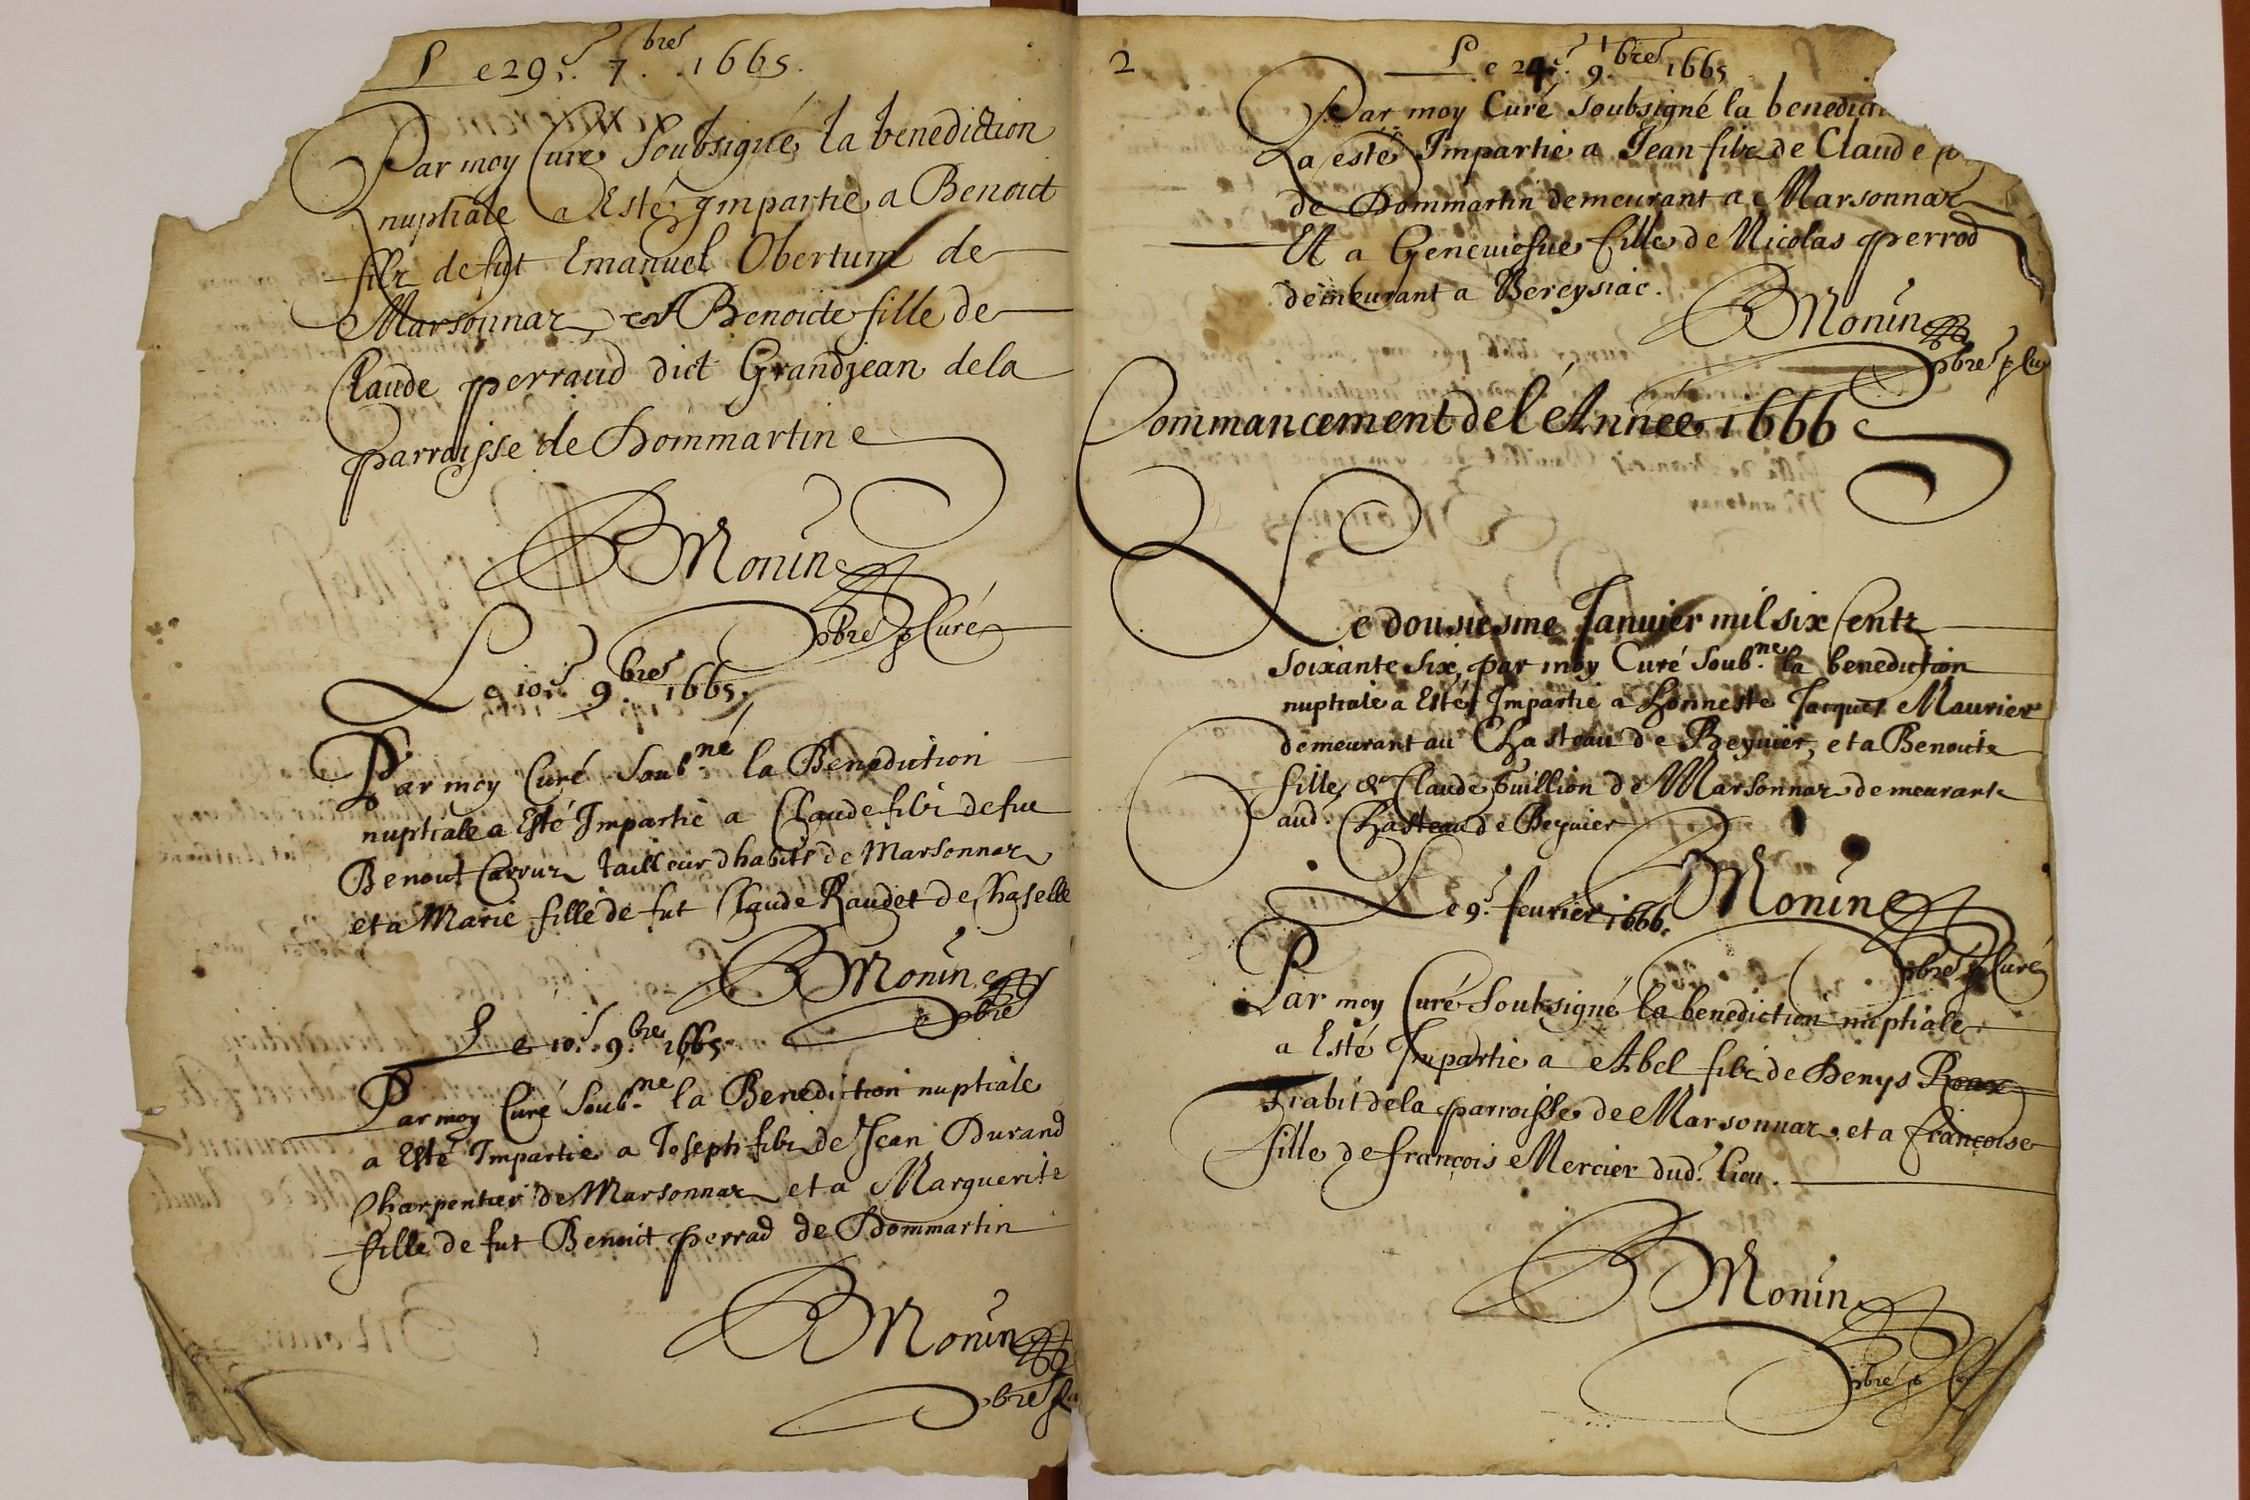 Le 29.e 7.bre 1665.
Par moy Curé Soubsigné, la benediction
nuptiale a Esté ympartie a Benoict
filz de fut Emanuel Obertum de
Marsonnaz, et Benoicte fille de
Claude perraud dict Grandjean de la
parroisse de Dommartin
B Monin
pbre Curé
Le 10.e 9.bre 1665.
Par moy Curé Soub.né la Benediction
nuptiale a Esté Impartie a Claude filz de fue
Benoict Carruz tailleur dhabitz de Marsonnaz
et a Marie fille de fut Claude Raudet de Chaselle
B Monin
pbre
Le 10.e 9.bre 1665.
Par moy Curé Soub.né la Benediction nuptiale
a Esté Impartie a Joseph filz de Jean Durand
Charpentier de Marsonnaz et a Marguerite
fille de fut Benoict perrad de Dommartin
B Monin
pbre
2
Le 24.e 9.bre 1665
Par moy Curé Soubsigné la
a esté Impartie a Jean filz de Claude
de Dommartin demeurant a Marsonnaz
Et a Geneuiefue fille de Nicolas perrod
demeurant a Bereysiac.
B Monin
pbre
Commancement de l'Année 1666
Le dousiesme Januier mil six Centz
soixante six, par moy Curé Soub.né la benediction
nuptiale a Esté Impartie a honneste Jacques Maurier
demeurant au Chasteau de Beyuier, et a Benoicte
fille de Claude Guillion de Marsonnaz demeurante
aud. Chasteau de Beyuier
B Monin
pbre Curé
Le 9.e feurier 1666.
Par moy Curé Soubsigné la benediction nuptiale
a Esté Impartie a Abel filz de Denys
Trabit de la parroisse de Marsonnaz et a francoise
fille de françois Mercier dud. lieu.
B Monin
pbre